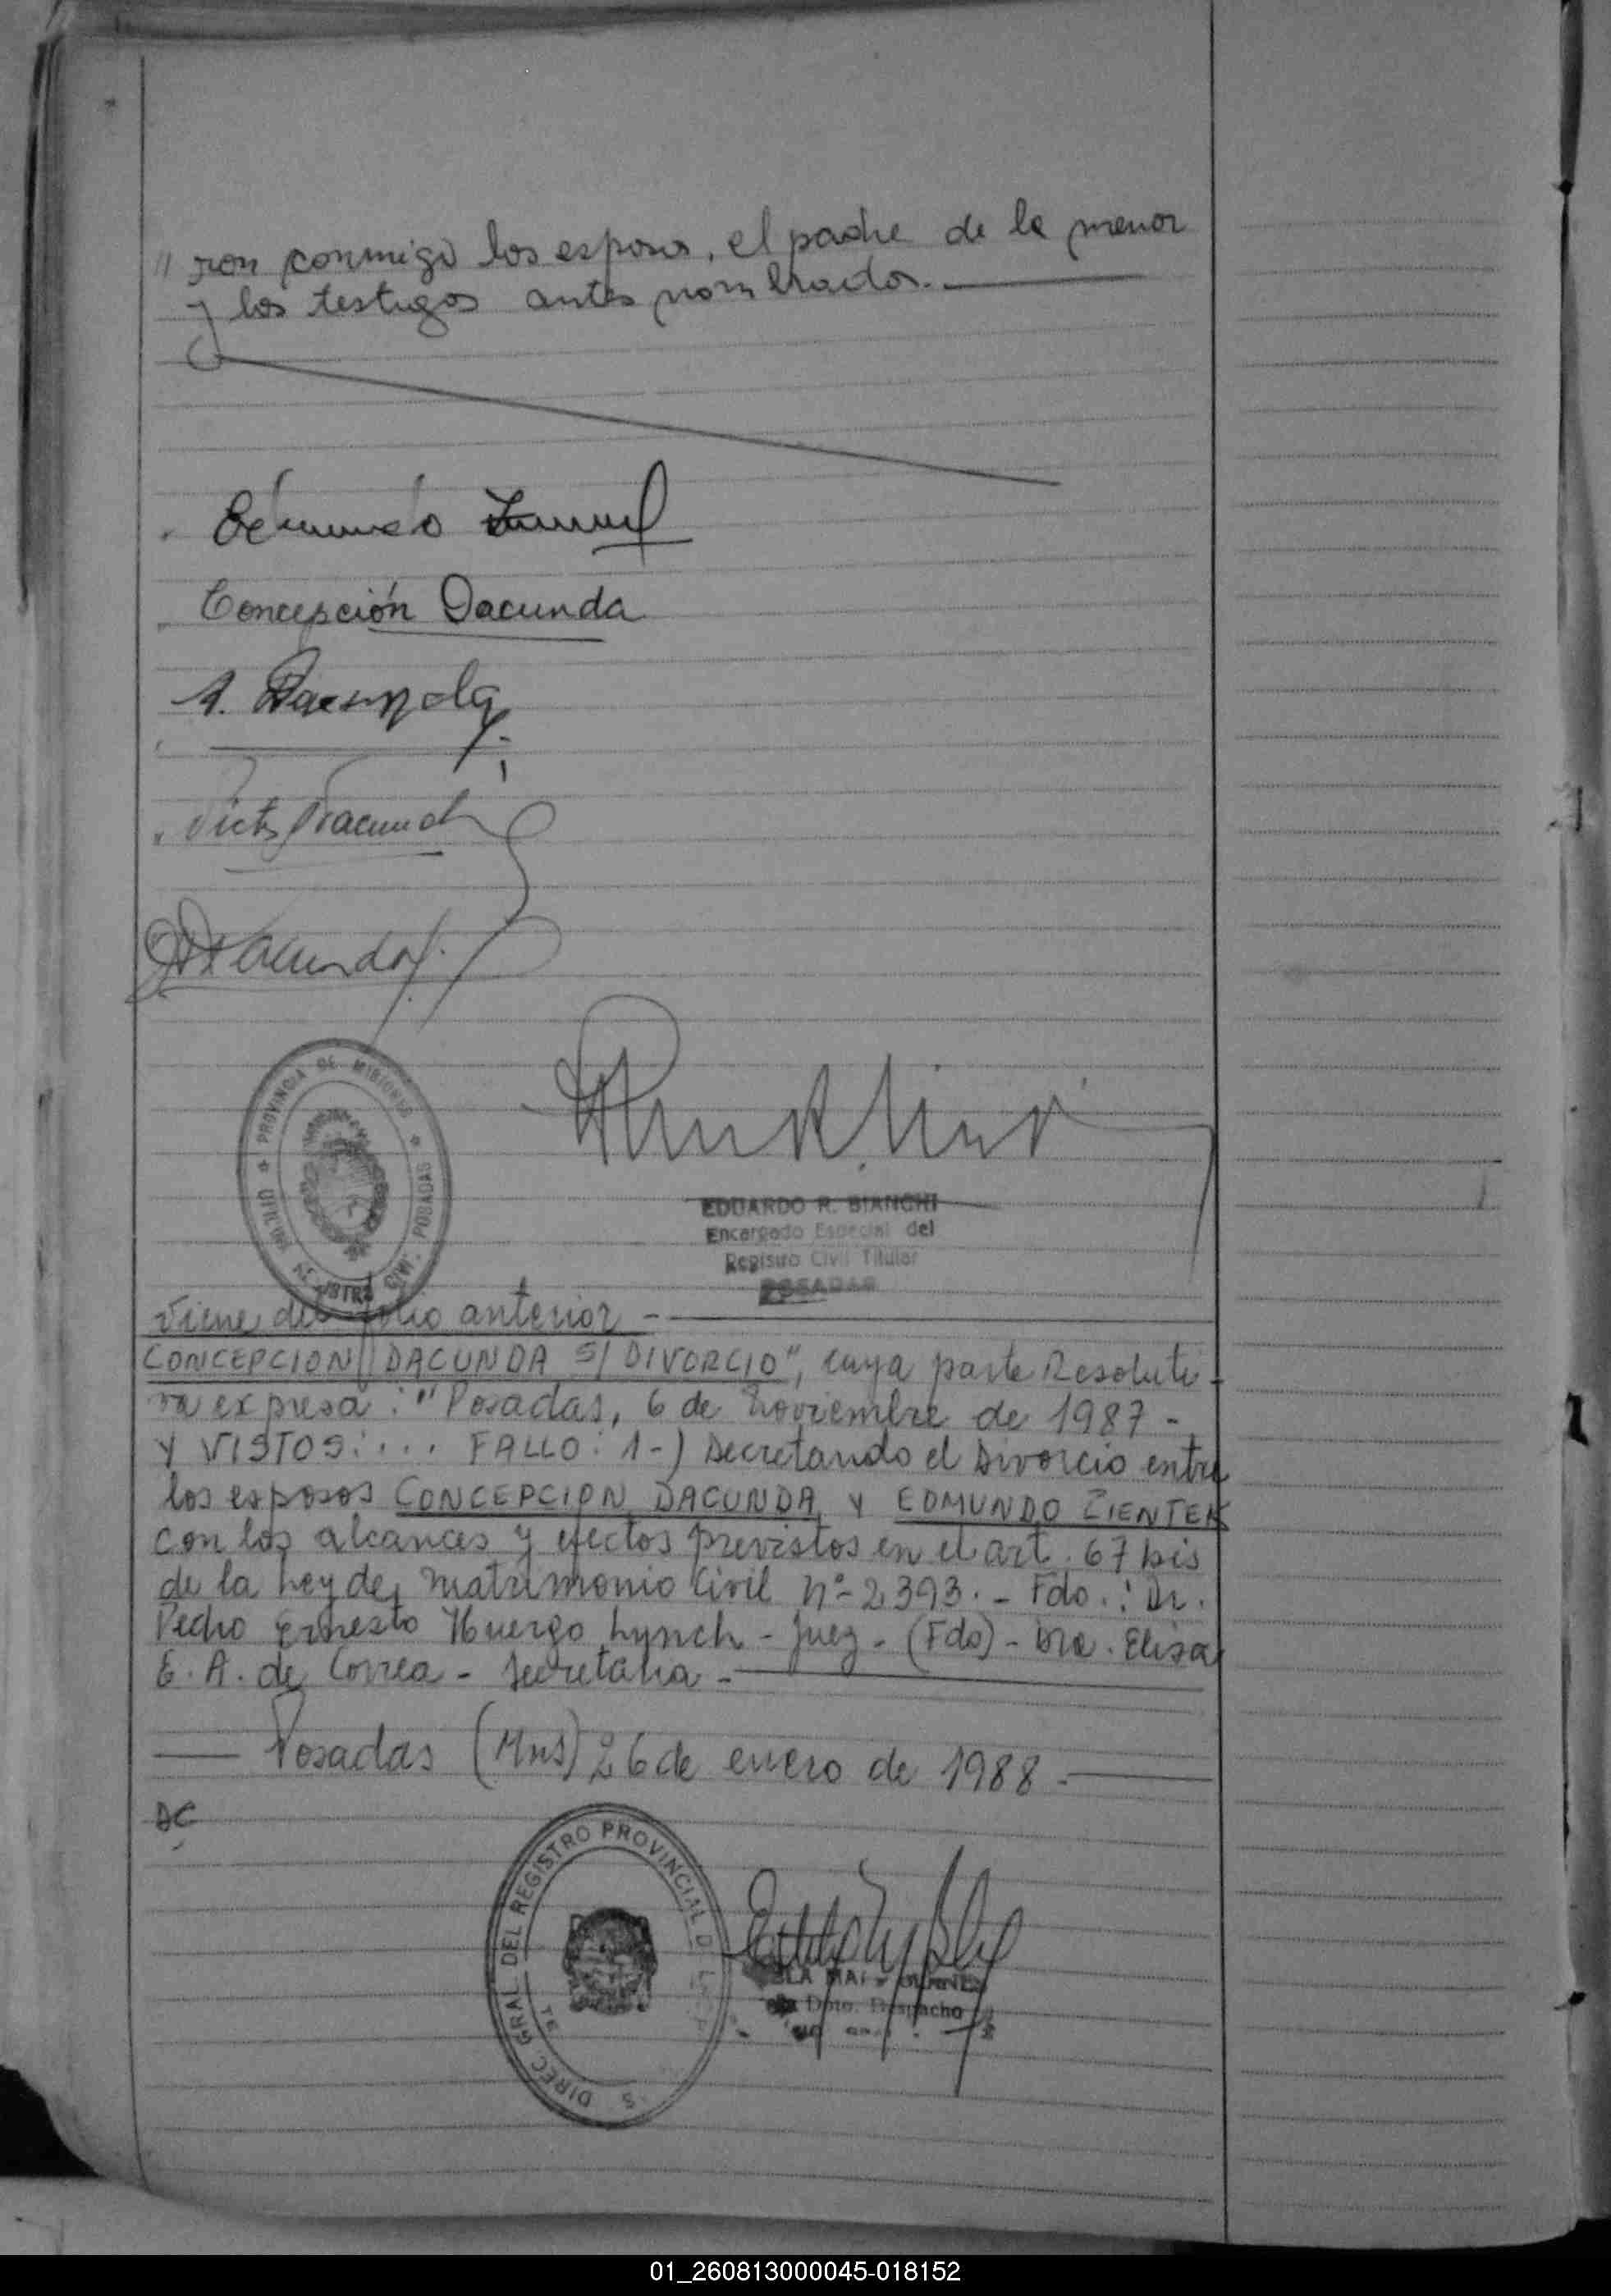 " ron conmigo los esposos, el padre de la menor
y los testigos antes nombrados.
Concepción Dacunda
A. Dacunda
Dacunda
PROVINCIA DE MISIONES
REGISTRO CIVIL POSADAS
EDUARDO R. BIANCHI
Encargado Especial del
Registro Civil Titular
POSADAS
Viene del folio anterior -
CONCEPCION DACUNDA S/ DIVORCIO", cuya parte Resoluti-
va expresa: "Posadas, 6 de Noviembre de 1987.-
Y VISTOS:... FALLO: 1-) Decretando el Divorcio entre
los esposos CONCEPCION DACUNDA Y EDMUNDO ZIENTEK
con los alcances y efectos previstos en el art. 67 bis
de la Ley de Matrimonio Civil nº 2393.- Fdo.: Dr.
Pedro Ernesto Huergo Lynch - Juez - (Fdo) - Dra. Elisa
E. A. de Correa - Secretaria -
Posadas (Mns) 26 de enero de 1988.-
DC
DIREC. GRAL DEL REGISTRO PROVINCIAL D
Dpto. Despacho
01_260813000045-018152